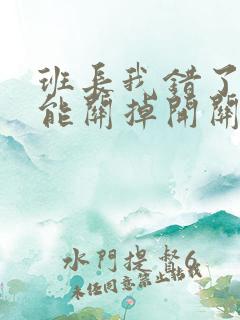 班长我错了
能關掉開關
水門提督6
未任同意禁止转载